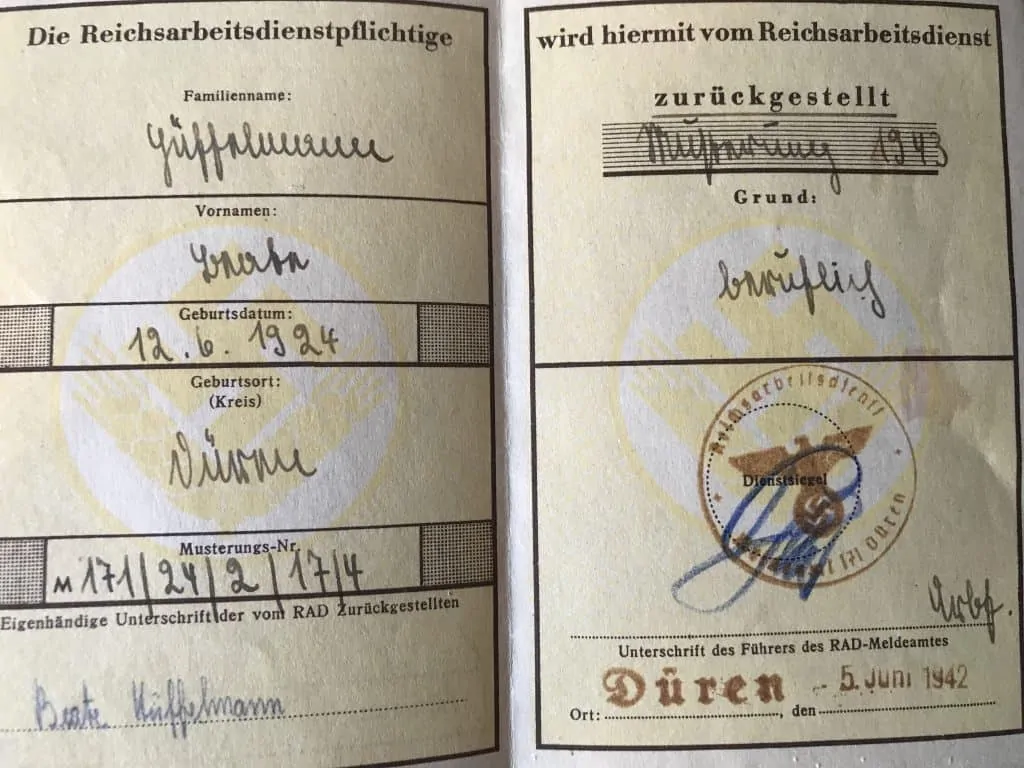 Die Reichsarbeitsdienstpflichtige
Familienname:
Hüffelmann
Vornamen:
Beate
Geburtsdatum:
12.6.1924
Geburtsort:
(Kreis)
Düren
Musterungs-Nr.
M 171/24/2/17/4
Eigenhändige Unterschrift der vom RAD Zurückgestellten
Beate Hüffelmann
wird hiermit vom Reichsarbeitsdienst
zurückgestellt
Musterung 1943
Grund:
beruflich
Reichsarbeitsdienst
Dienstsiegel
Meldeamt 171 Düren
Unterschrift des Führers des RAD-Meldeamtes
Ort: Düren, den - 5. Juni 1942